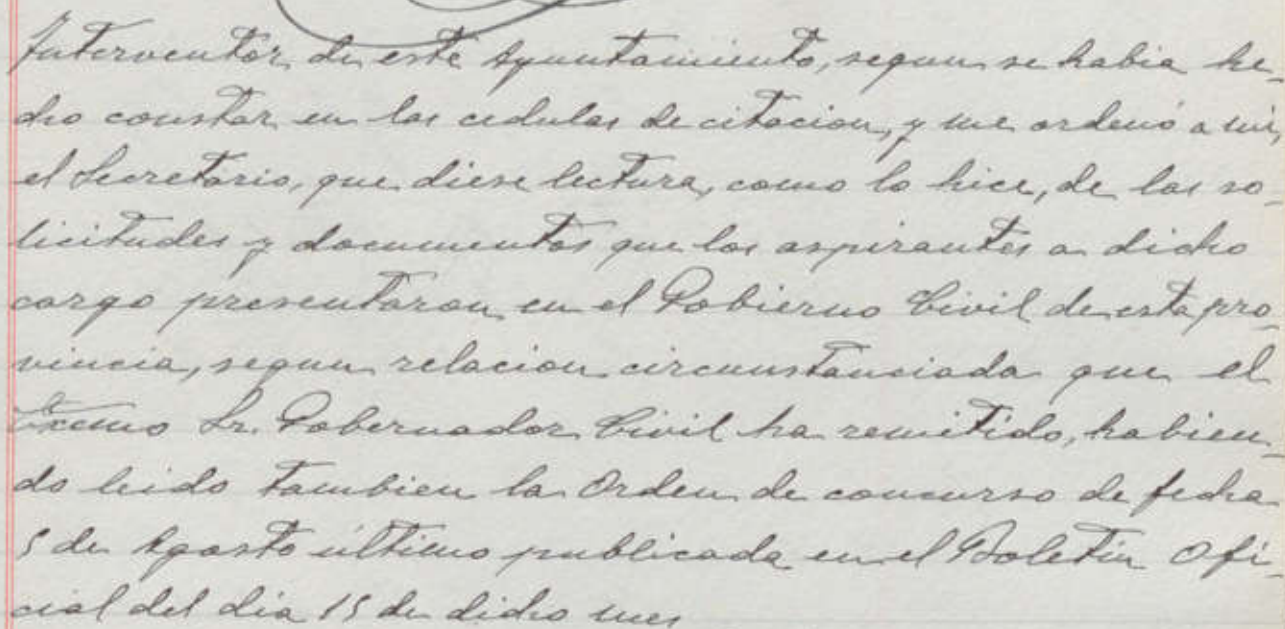 Interventor de este Ayuntamiento, segun se habia he-
cho constar en las cedulas de citacion, y me ordenó a mi,
el Secretario, que diese lectura, como lo hice, de las so-
licitudes y documentos que los aspirantes a dicho
cargo presentaron en el Gobierno Civil de esta pro-
vincia, segun relacion circunstanciada que el
Excmo Sr. Gobernador Civil ha remitido, habien-
do leido tambien la Orden de concurso de fecha
5 de Agosto último publicada en el Boletin Ofi-
cial del dia 15 de dicho mes